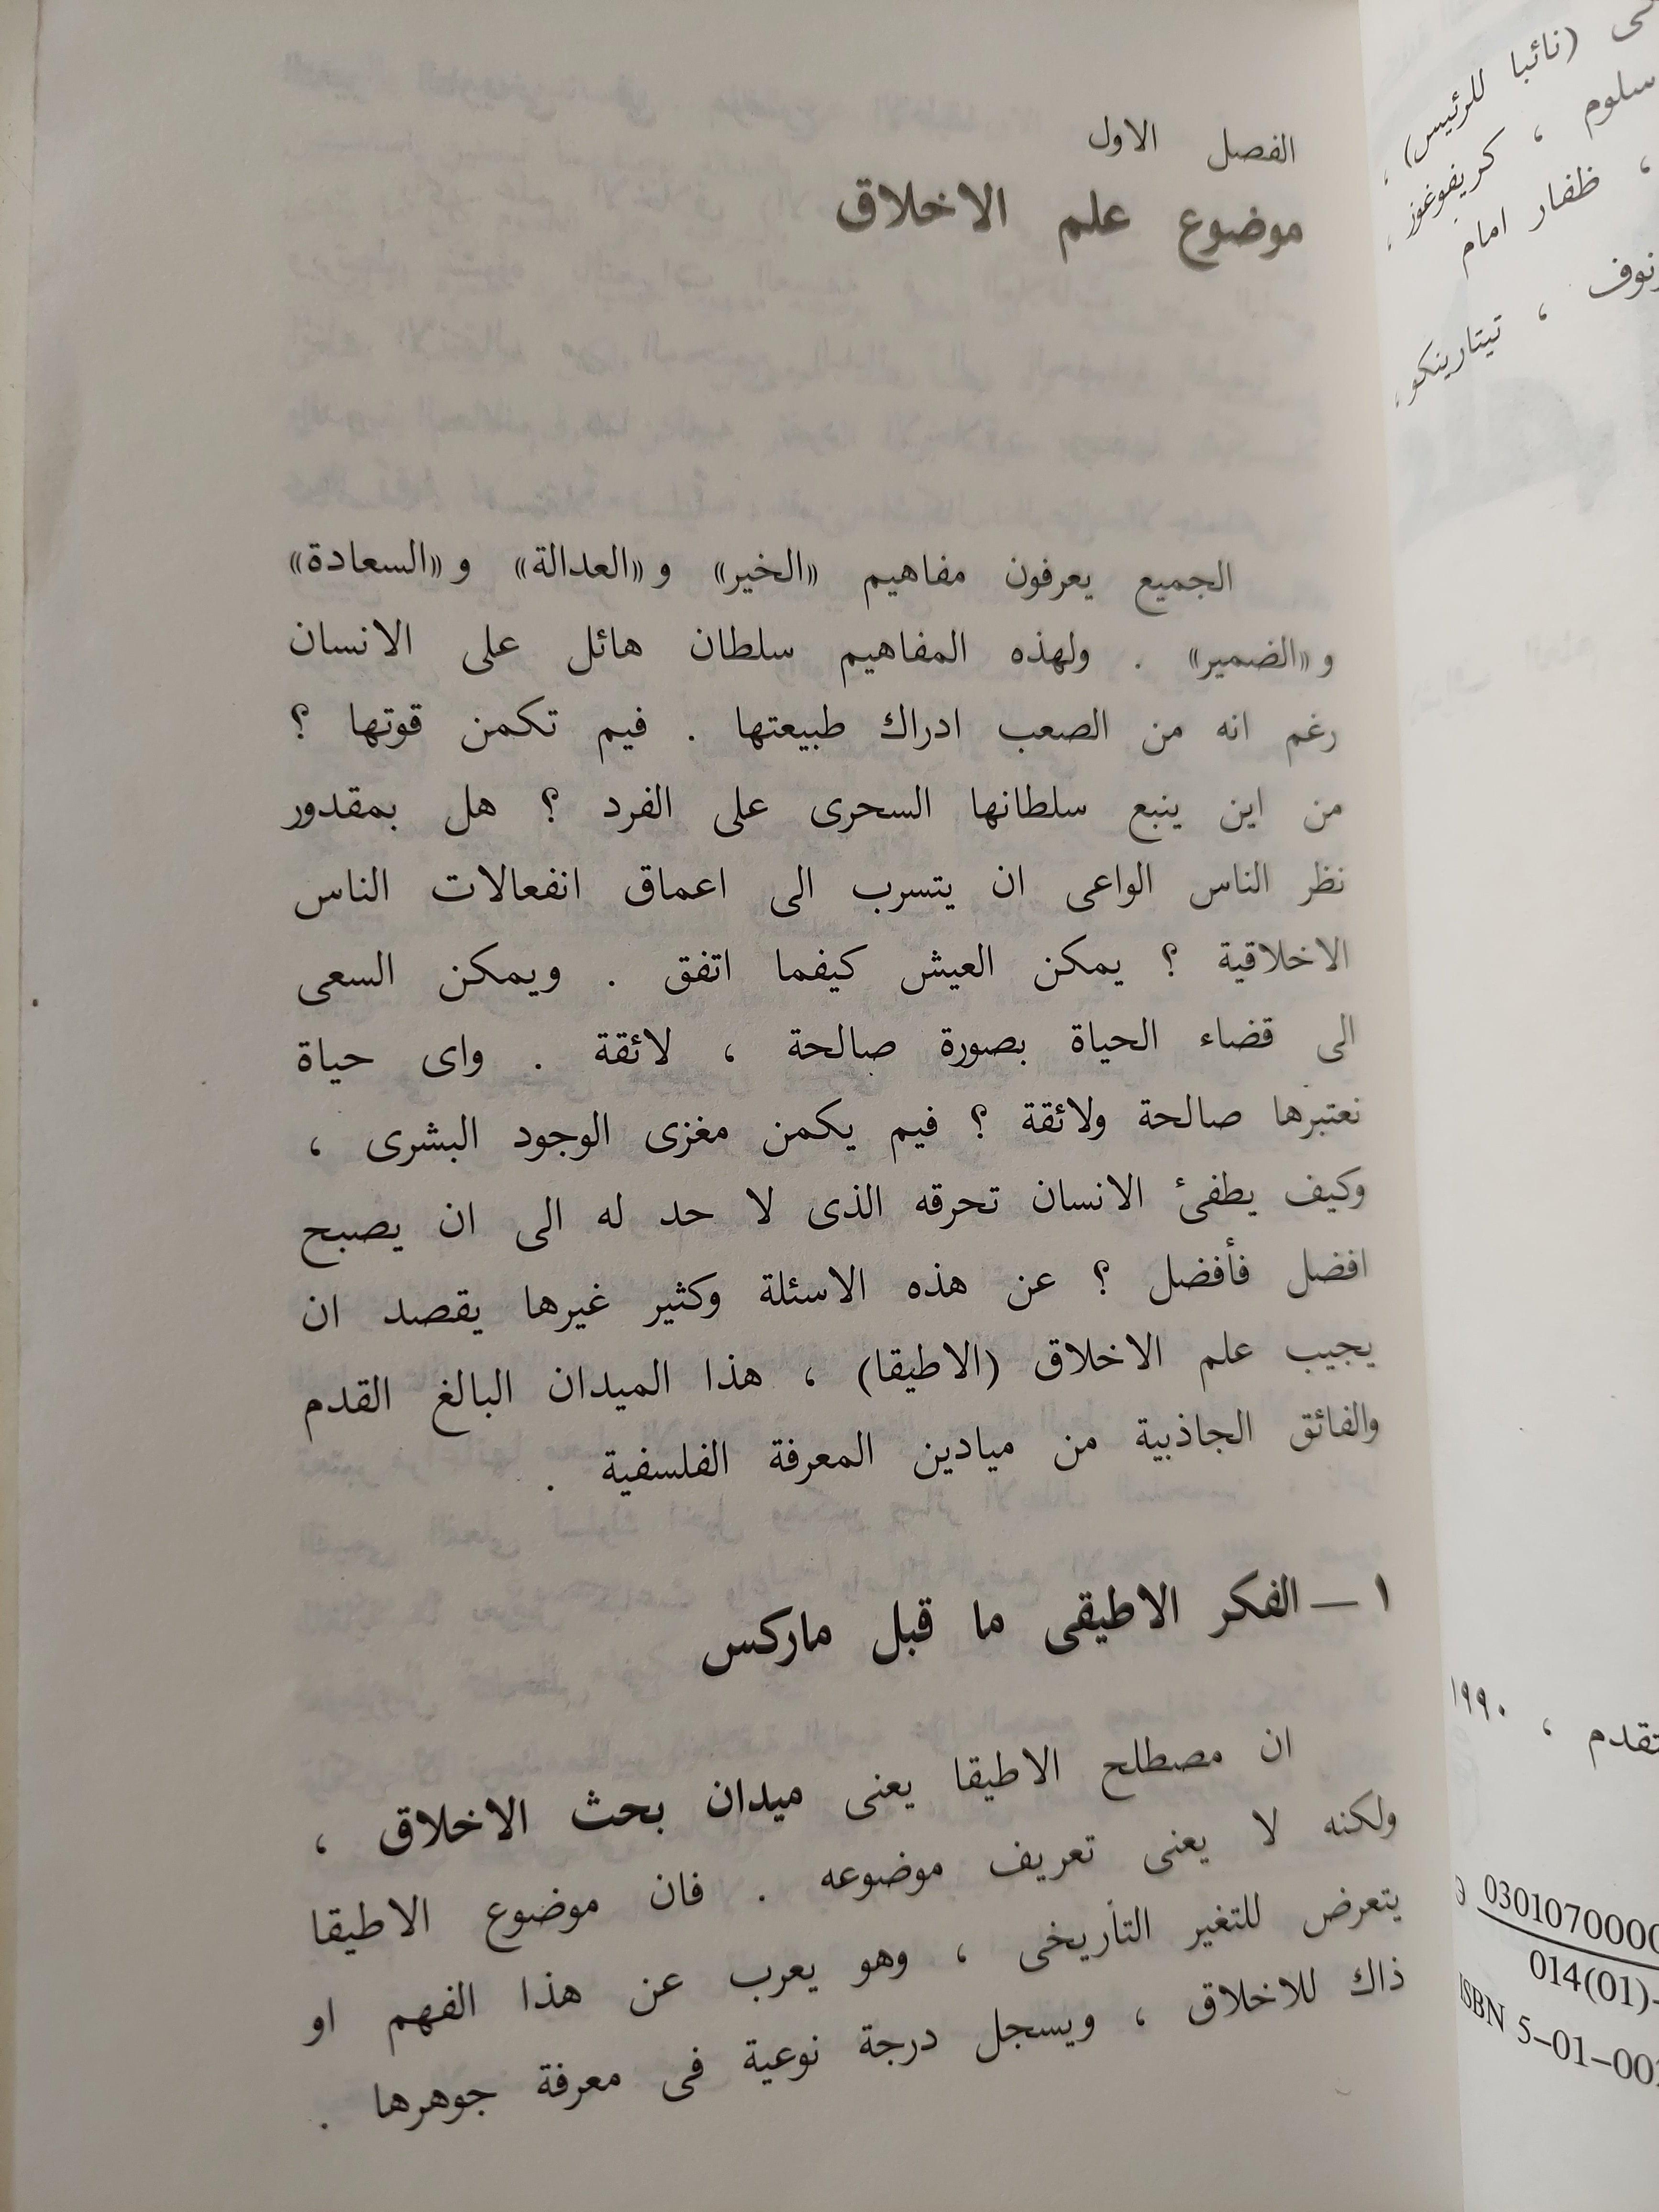 الفصل الاول
موضوع علم الاخلاق
الجميع يعرفون مفاهيم «الخير» و«العدالة» و«السعادة»
و«الضمير» . ولهذه المفاهيم سلطان هائل على الانسان
رغم انه من الصعب ادراك طبيعتها . فيم تكمن قوتها ؟
من اين ينبع سلطانها السحرى على الفرد ؟ هل بمقدور
نظر الناس الواعى ان يتسرب الى اعماق انفعالات الناس
الاخلاقية ؟ يمكن العيش كيفما اتفق . ويمكن السعى
الى قضاء الحياة بصورة صالحة ، لائقة . واى حياة
نعتبرها صالحة ولائقة ؟ فيم يكمن مغزى الوجود البشرى ،
وكيف يطفئ الانسان تحرقه الذى لا حد له الى ان يصبح
افضل فأفضل ؟ عن هذه الاسئلة وكثير غيرها يقصد ان
يجيب علم الاخلاق (الاطيقا) ، هذا الميدان البالغ القدم
والفائق الجاذبية من ميادين المعرفة الفلسفية .
١ — الفكر الاطيقى ما قبل ماركس
ان مصطلح الاطيقا يعنى ميدان بحث الاخلاق ،
ولكنه لا يعنى تعريف موضوعه . فان موضوع الاطيقا
يتعرض للتغير التأريخى ، وهو يعرب عن هذا الفهم او
ذاك للاخلاق ، ويسجل درجة نوعية فى معرفة جوهرها .
(نائبا للرئيس) ،
سلوم ، كريفوغوز ،
، ظفار امام
، تيتارينكو ،
١٩٩٠
030107000
014(01)-
ISBN 5-01-00